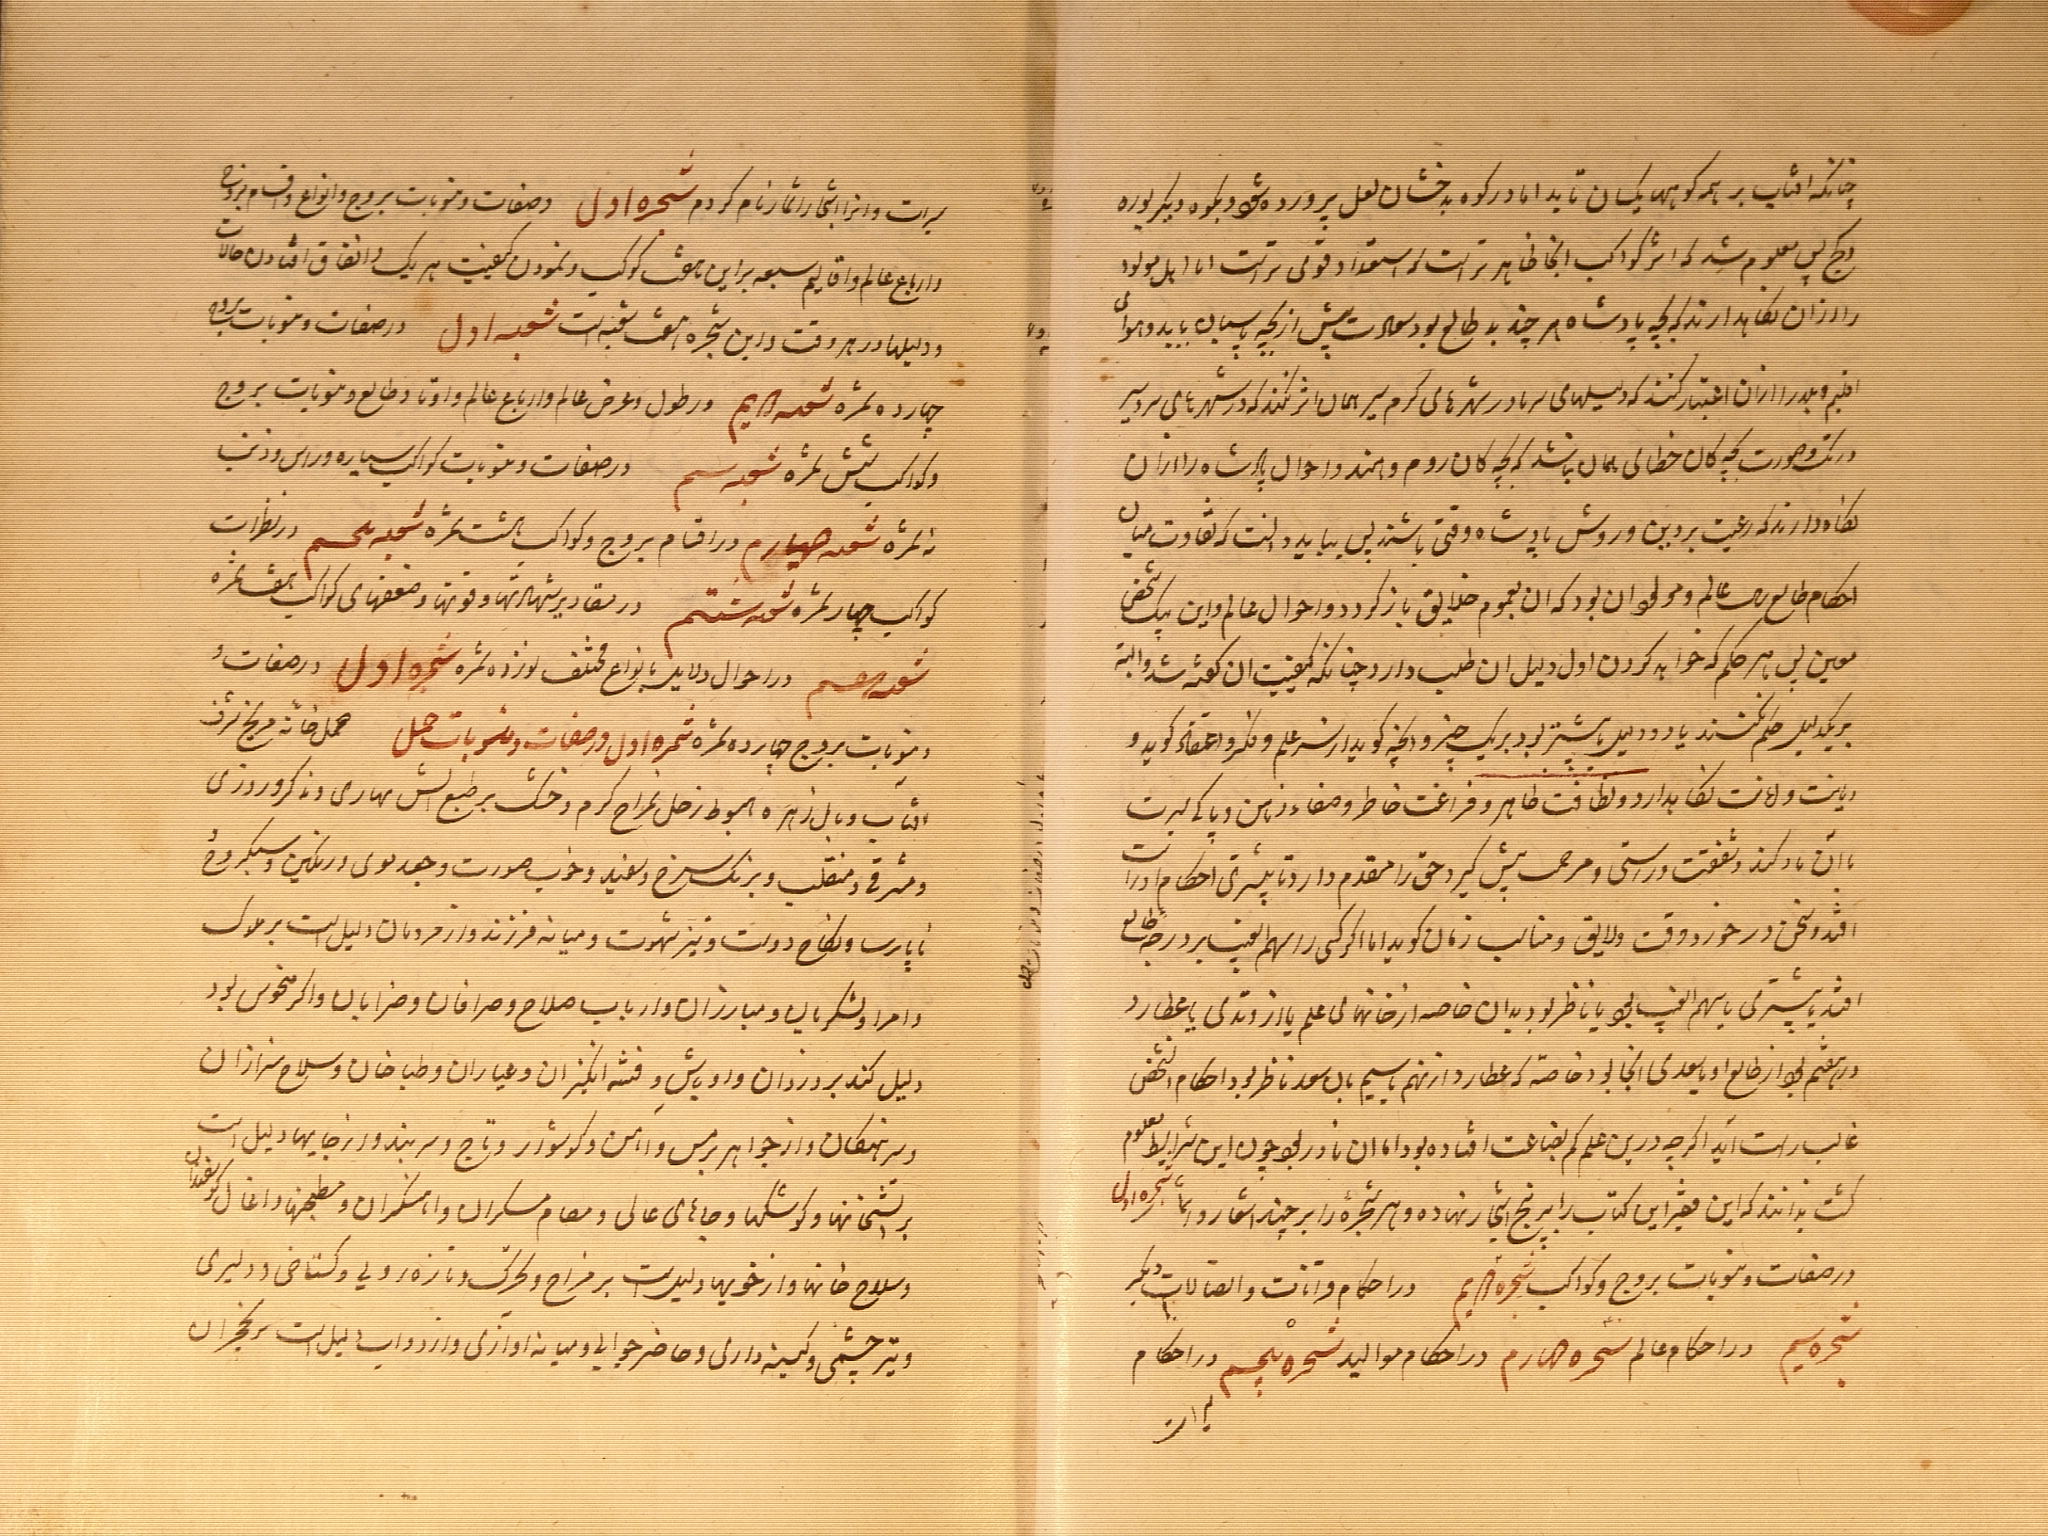 چنانکه افتاب بر همه کوهها یکسان تابد اما در کوه بدخشان لعل پرورده شود و بکوه دیکر بوره
و کج پس معلوم شد که اثر کواکب انجا ظاهرتر است که استعداد قوی تر است اما اهل مولود
را از ان نکاه دارند که بچه پادشاه هر چند بد طالع بود سعادت بیش از بچه پاسبان یابد و هوای
اقلیم و بلد را از ان اعتبار کنند که دلیلهای سرما در شهرهای کرم سیر همان اثر نکند که در شهرهای سردسیر
در رنک و صورت بچه کان خطائی همان نباشد که بچه کان روم و هند و احوال پادشاه را از ان
نکاه دارند که رعیت بر دین و روش پادشاه وقتی باشند پس بباید دانست که تفاوت میان
احکام طالع عالم و موالید ان بود که ان بعموم خلایق باز کردد و احوال عالم و این بیک شخص
معین پس هر حکم که خواهد کردن اول دلیل ان طلب دارد چنانکه کیفیت ان کفته شد و البته
بر یکدلیل حکم نکنند یا دو دلیل یا بیشتر بود بر یک چیز و انچه کوید از سر علم و فکر و اعتقاد کوید و
دیانت و امانت نکاه دارد و نظافت ظاهر و فراغت خاطر و صفاء ذهن و پاکی سیرت
با ان یار کند و شفقت و راستی و مرحمت پیش کیرد و حق را مقدم دارد تا بیشتری احکام او راست
افتد و سخن در خورد وقت و لایق و مناسب زمان کوید اما اکر کسی را سهم الغیب بر درجه طالع
افتد یا مشتری با سهم الغیب بود یا ناظر بود بدان خاصه از خانهای علم یا از وتدی یا عطارد
در هفتم بود از طالع او با سعدی انجا بود خاصه که عطارد از نهم یا سیم بان سعد ناظر بود احکام انشخص
غالب راست اید اکرچه درین علم کم بضاعت افتاده بود اما ان نادر بود چون این شرایط معلوم
کشت بدانند که این فقیر این کتاب را بر پنج اشجار نهاده و هر شجره را بر چند اشعار و اثمار شجره اول
در صفات و منوبات بروج و کواکب شجره دویم در احکام قرانات و اتصالات دیکر
شجره سیم در احکام عالم شجره چهارم در احکام موالید شجره پنجم در احکام
سیرات
سیرات و انرا اشجار اثمار نام کردم شجره اول در صفات و منوبات بروج و انواع و اقسام بروج
و ارباع عالم و اقالیم سبعه بر این هفت کوکب و نمودن کیفیت هر یک و اتفاق افتادن حالات
و دلیلها در هر وقت و این شجره هفت شعبه است شعبه اول در صفات و منوبات بروج
چهارده ثمره شعبه دویم در طول و عرض عالم و ارباع عالم و اوتاد طالع و منوبات بروج
و کواکب شش ثمره شعبه سیم در صفات و منوبات کواکب سیاره و راس و ذنب
نه ثمره شعبه چهارم در اقسام بروج و کواکب هشت ثمره شعبه پنجم در نظرات
کواکب چهار ثمره شعبه ششم در مقادیر شهادتها و قوتها و ضعفهای کواکب هفت ثمره
شعبه هفتم در احوال دلایل بانواع مختلف نوزده ثمره شجره اول در صفات و
و منوبات بروج چهارده ثمره ثمره اول در صفات و منوبات حمل حمل خانه مریخ شرف
افتاب وبال زهره هبوط زحل مزاج کرم و خشک بر طبع اتش بهاری و مذکر و روزی
و مشرقی و منقلب و برنک سرخ و سفید و خوب صورت و جعد موی و رنکین و سبکروح
ناپارسا و نکاح دوست و تیز شهوت و میانه فرزند و از مردمان دلیل است بر ملوک
و امرا و لشکریان و مبارزان و ارباب صلاح و صرافان و ضرابان و اکر منحوس بود
دلیل کند بر دزدان و اوباش و فتنه انکیزان و عیاران و طباخان و سلاح سازان
و سرهنکان و از جواهر بر مس و اهن و کوشوار و تاج و سربند و از جایها دلیل است
بر اتشخانها و کوشکها و جاهای عالی و مقام مسکران و اهنکران و مطبخها و اغال کوسفندان
و سلاح خانها و از خویها دلیلست بر مزاح و تحرک و تازه رویی و کستاخی و دلیری
و تیز چشمی و کینه داری و حاضر جوابی و میانه اوازی و از دواب دلیل است بر نخجیران